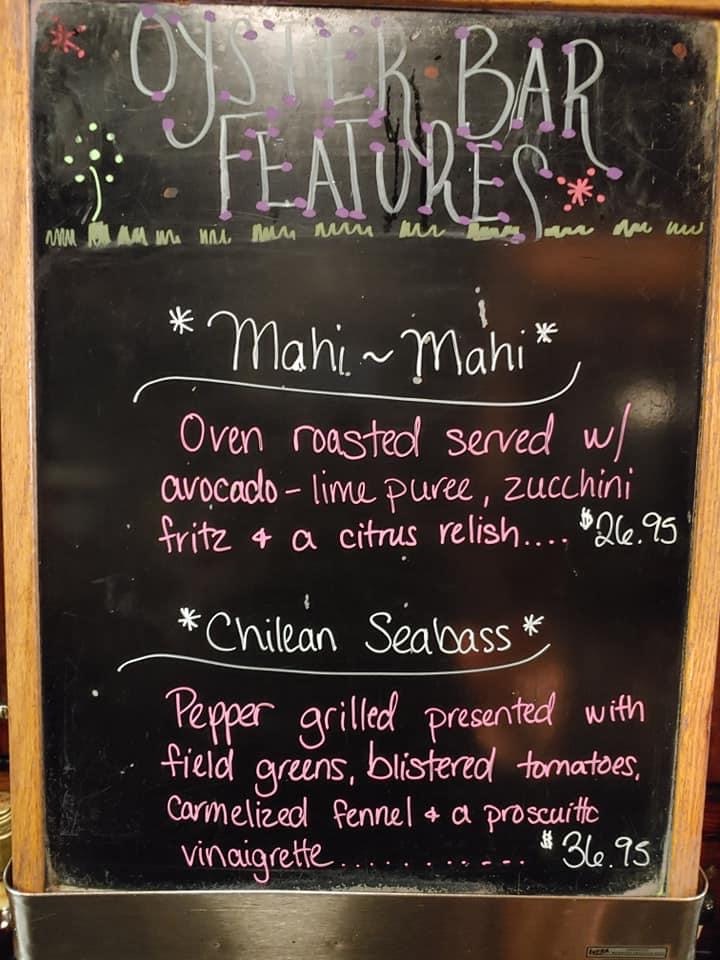 OYSTER BAR
FEATURES
* Mahi ~ Mahi *
Oven roasted served w/
avocado - lime puree, zucchini
fritz & a citrus relish.... $26.95
* Chilean Seabass *
Pepper grilled presented with
field greens, blistered tomatoes,
carmelized fennel & a proscuitto
vinaigrette........... $36.95